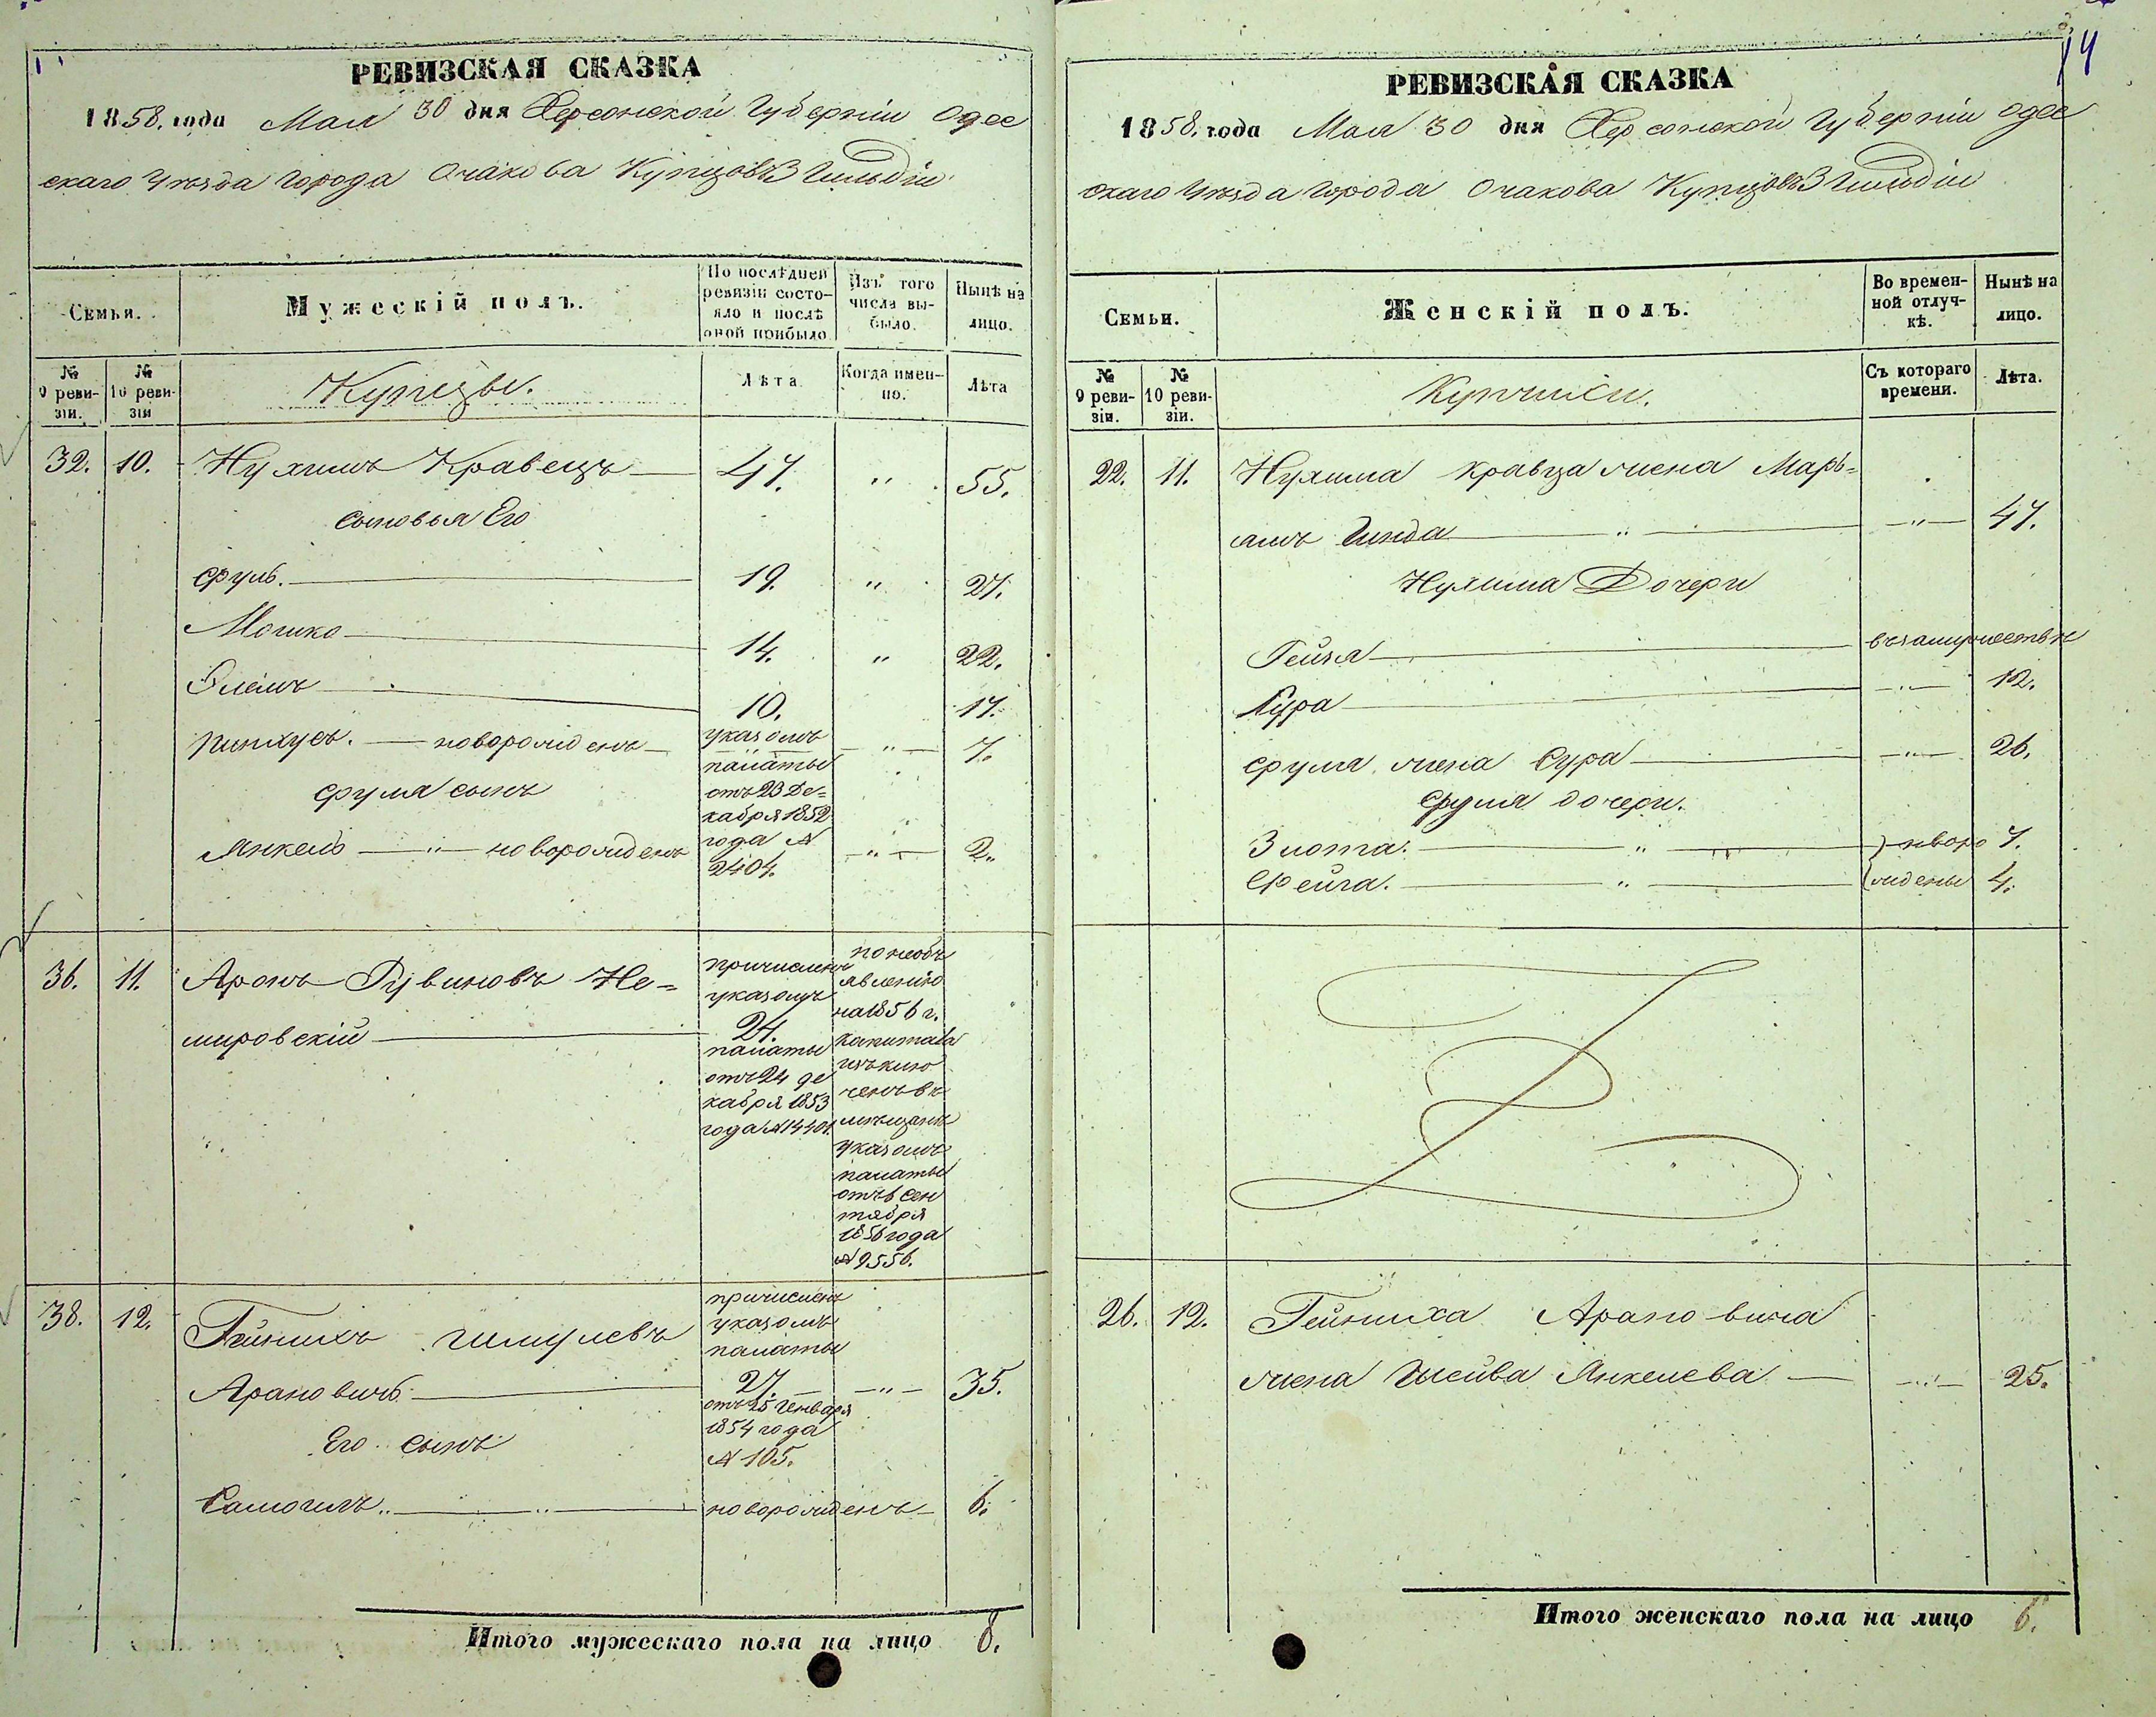 РЕВИЗСКАЯ СКАЗКА
1858. года Мая 30 дня Херсонской Губерніи Одес
скаго Уѣзда города Очакова Купцовъ 3 Гильдіи
Семьи.
Мужескій полъ.
По послѣдней ревизіи состояло и послѣ оной прибыло
Изъ того числа выбыло.
Нынѣ на лицо.
№ 9 ревизіи.
№ 10 ревизіи
Купцы.
Лѣта
Когда именно.
Лѣта
32. 10. Нухимъ Кравецъ 47. " 55.
сыновья Его
Сруль. 19. " 27.
Мошко 14. " 22.
10. 17.
Пинхусъ. — новорожденъ — " — 7.
Сруля сынъ
Янкель — " — новорожденъ — " — 2.
указомъ
палаты
отъ 23 Де=
кабря 1852
года №
2404.
36. 11. Аронъ Рувиновъ Не=
мировскій
причисленъ
указомъ
24.
палаты
отъ 24 де
кабря 1853
года № 14401.
по необъ
явленію
на 1856 г.
капитала
исклю
ченъ въ
мѣщане
указомъ
палаты
отъ 6 Сен
тября
1856 года
№ 9556.
38. 12. Гейнихъ Шмулевъ
Арановичъ — " — 35.
причисленъ
указомъ
палаты
27.
отъ 25 Генваря
1854 года
№ 105.
Его сынъ
Самоилъ.. — " — новорожденъ — 6.
Итого мужескаго пола на лицо 8.
14
РЕВИЗСКАЯ СКАЗКА
1858. года Мая 30 дня Херсонской Губерніи Одес
скаго Уѣзда города Очакова Купцовъ 3 Гильдіи
Семьи.
Женскій полъ.
Во временной отлучкѣ.
Нынѣ на лицо.
№ 9 ревизіи.
№ 10 ревизіи.
Съ котораго времени.
Лѣта.
22. 11. Нухима Кравца жена Марь=
ямъ Гинда — " — 47.
Нухима Дочери
Гейзя — въ замужествѣ
— " — 12.
Сруля жена Сура — " — 26.
Сруля дочери.
Злота. — " — новоро 7.
Фейга. — " — ждены 4.
26. 12. Гейниха Арановича
жена Шейва Янкелева — " — 25.
Итого женскаго пола на лицо 6.